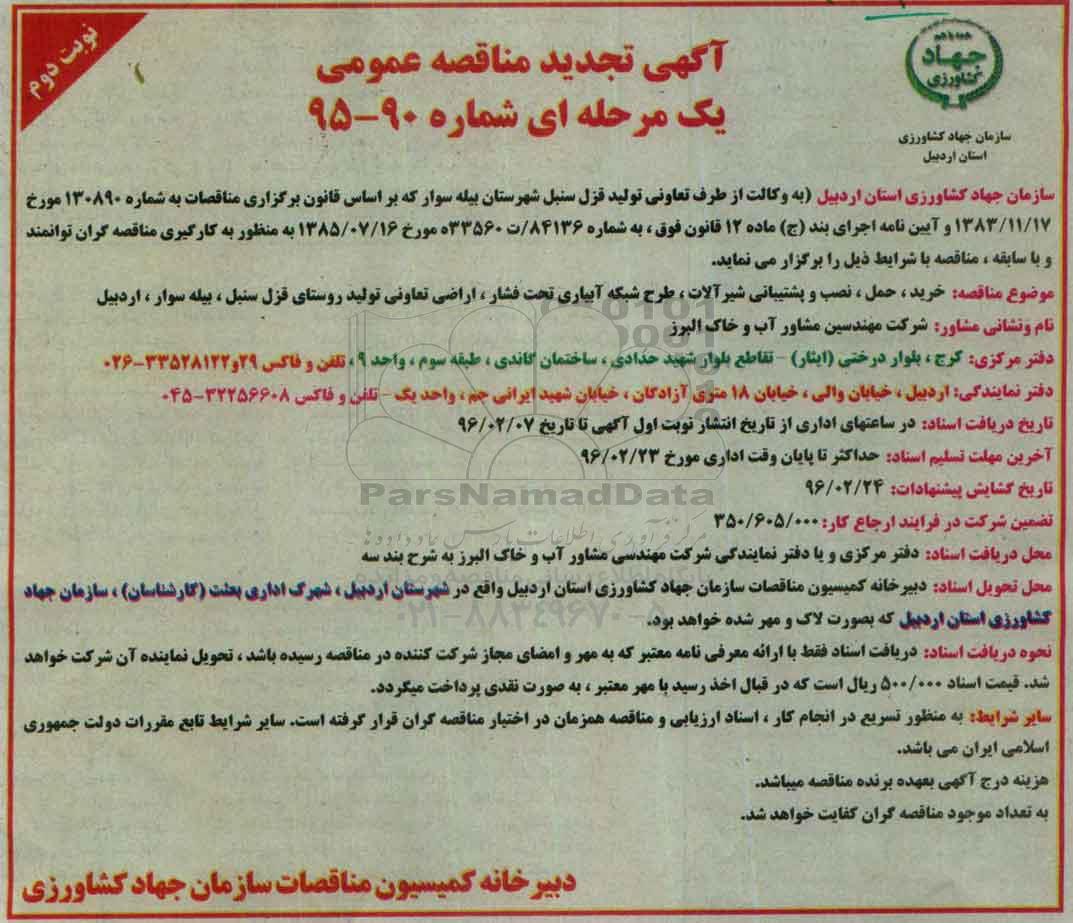 نوبت دوم
همه با هم
جهاد
کشاورزی
سازمان جهاد کشاورزی
استان اردبیل
آگهی تجدید مناقصه عمومی
یک مرحله ای شماره ۹۰-۹۵
سازمان جهاد کشاورزی استان اردبیل (به وکالت از طرف تعاونی تولید قزل سنبل شهرستان بیله سوار که بر اساس قانون برگزاری مناقصات به شماره ۱۳۰۸۹۰ مورخ
۱۳۸۳/۱۱/۱۷ و آیین نامه اجرای بند (ج) ماده ۱۲ قانون فوق ، به شماره ۸۴۱۳۶/ت ۳۳۵۶۰ه مورخ ۱۳۸۵/۰۷/۱۶ به منظور به کارگیری مناقصه گران توانمند
و با سابقه ، مناقصه با شرایط ذیل را برگزار می نماید.
موضوع مناقصه: خرید ، حمل ، نصب و پشتیبانی شیرآلات ، طرح شبکه آبیاری تحت فشار ، اراضی تعاونی تولید روستای قزل سنبل ، بیله سوار ، اردبیل
نام ونشانی مشاور: شرکت مهندسین مشاور آب و خاک البرز
دفتر مرکزی: کرج ، بلوار درختی (ایثار) - تقاطع بلوار شهید حدادی ، ساختمان گاندی ، طبقه سوم ، واحد ۹ ، تلفن و فاکس ۲۹و۳۳۵۲۸۱۲۲-۰۲۶
دفتر نمایندگی: اردبیل ، خیابان والی ، خیابان ۱۸ متری آزادگان ، خیابان شهید ایرانی جم ، واحد یک - تلفن و فاکس ۳۲۲۵۶۶۰۸-۰۴۵
تاریخ دریافت اسناد: در ساعتهای اداری از تاریخ انتشار نوبت اول آگهی تا تاریخ ۹۶/۰۲/۰۷
آخرین مهلت تسلیم اسناد: حداکثر تا پایان وقت اداری مورخ ۹۶/۰۲/۲۳
تاریخ گشایش پیشنهادات: ۹۶/۰۲/۲۴
ParsNamadData
تضمین شرکت در فرایند ارجاع کار: ۳۵۰/۶۰۵/۰۰۰
مرکز فرآوری اطلاعات پارس نماد داده ها
محل دریافت اسناد: دفتر مرکزی و یا دفتر نمایندگی شرکت مهندسی مشاور آب و خاک البرز به شرح بند سه
محل تحویل اسناد: دبیرخانه کمیسیون مناقصات سازمان جهاد کشاورزی استان اردبیل واقع در شهرستان اردبیل ، شهرک اداری بعثت (کارشناسان) ، سازمان جهاد
کشاورزی استان اردبیل که بصورت لاک و مهر شده خواهد بود.
۰۲۱-۸۸۳۴۹۶۷۰-۵
نحوه دریافت اسناد: دریافت اسناد فقط با ارائه معرفی نامه معتبر که به مهر و امضای مجاز شرکت کننده در مناقصه رسیده باشد ، تحویل نماینده آن شرکت خواهد
شد. قیمت اسناد ۵۰۰/۰۰۰ ریال است که در قبال اخذ رسید با مهر معتبر ، به صورت نقدی پرداخت میگردد.
سایر شرایط: به منظور تسریع در انجام کار ، اسناد ارزیابی و مناقصه همزمان در اختیار مناقصه گران قرار گرفته است. سایر شرایط تابع مقررات دولت جمهوری
اسلامی ایران می باشد.
هزینه درج آگهی بعهده برنده مناقصه میباشد.
به تعداد موجود مناقصه گران کفایت خواهد شد.
دبیرخانه کمیسیون مناقصات سازمان جهاد کشاورزی